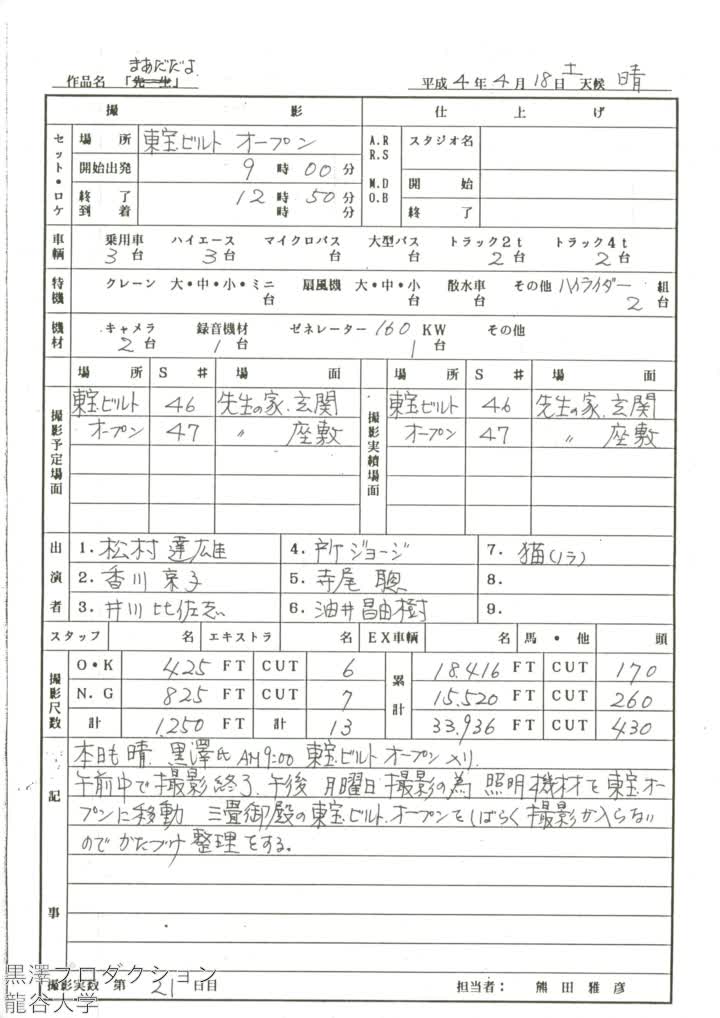 まあだだよ
作品名 「先生」 平成 4 年 4 月 18 日 土 天候 晴
撮 影 仕 上 げ
セット・ロケ 場 所 東宝ビルト オープン A.R R.S M.D O.B スタジオ名
開始出発 9 時 00 分 開 始
終 了 12 時 50 分 終 了
到 着 時 分
車輌 乗用車 3台 ハイエース 3台 マイクロバス 台 大型バス 台 トラック2t 2台 トラック4t 2台
特機 クレーン 大・中・小・ミニ 台 扇風機 大・中・小 台 散水車 台 その他 ハイライダー 組 2台
機材 キャメラ 2台 録音機材 1台 ゼネレーター 160 KW 1台 その他
撮影予定場面 場 所 S # 場 面 撮影実績場面 場 所 S # 場 面
東宝ビルト 46 先生の家.玄関 東宝ビルト 46 先生の家.玄関
オープン 47 〃 座敷 オープン 47 〃 座敷
出演者 1.松村 達雄 4.所ジョージ 7.猫(ノラ)
2.香川 京子 5.寺尾 聰 8.
3.井川 比佐志 6.油井昌由樹 9.
スタッフ 名 エキストラ 名 EX車輌 名 馬・他 頭
撮影尺数 O・K 425 FT CUT 6 累計 18.416 FT CUT 170
N.G 825 FT CUT 7 15.520 FT CUT 260
計 1.250 FT 計 13 33.936 FT CUT 430
記事
本日も晴. 黒澤氏 AM9:00 東宝.ビルト オープン 入り.
午前中で撮影終了. 午後 月曜日撮影の為 照明機材を東宝オー
プンに移動 三畳御殿の東宝.ビルト.オープンをしばらく撮影が入らない
のでかたづけ整理をする.
撮影実数 第 21 日目 担当者: 熊 田 雅 彦
黒澤プロダクション
龍谷大学